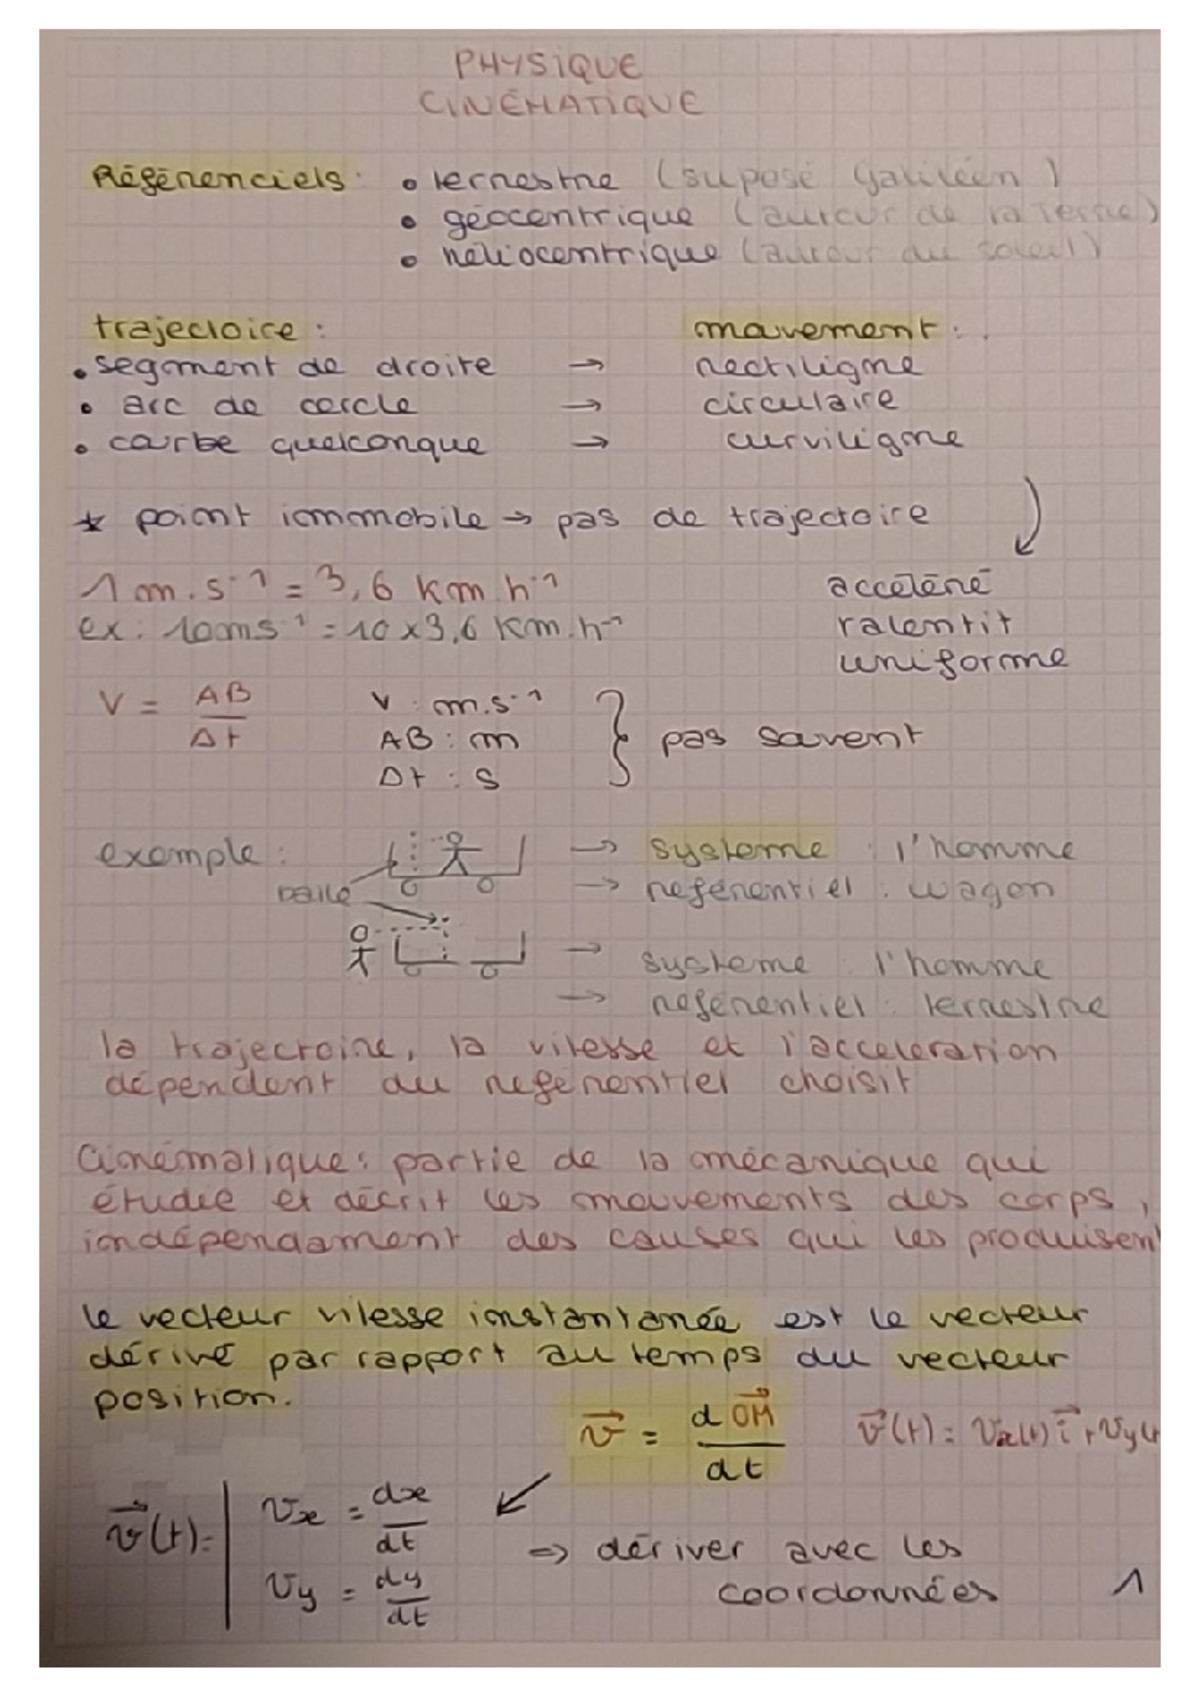 PHYSIQUE
CINÉMATIQUE
Référenciels: • terrestre (suposé galiléen)
• géocentrique (autour de la Terre)
• héliocentrique (autour du soleil)
trajectoire: mouvement:
• segment de droite → rectiligne
• arc de cercle → circulaire
• courbe quelconque → curviligne
* point immobile → pas de trajectoire
1 m.s⁻¹ = 3,6 km h⁻¹ accéléré
ex: 10 ms⁻¹ = 10 x 3,6 Km.h⁻¹ ralentit
uniforme
V = AB / Δt
V : m.s⁻¹
AB : m } pas souvent
Δt : s
exemple: → systeme : l'homme
balle → référentiel : wagon
→ systeme : l'homme
→ référentiel : terrestre
la trajectoire, la vitesse et l'acceleration
dépendent du référentiel choisit
Cinématique: partie de la mécanique qui
étudie et décrit les mouvements des corps,
indépendamment des causes qui les produisent
le vecteur vitesse instantanée est le vecteur
dérivé par rapport au temps du vecteur
position.
v⃗ = d OM⃗ / dt v⃗(t) = vx(t) i⃗ + vy(t
v⃗(t) = | vx = dx/dt
⇒ dériver avec les
| vy = dy/dt coordonnées 1